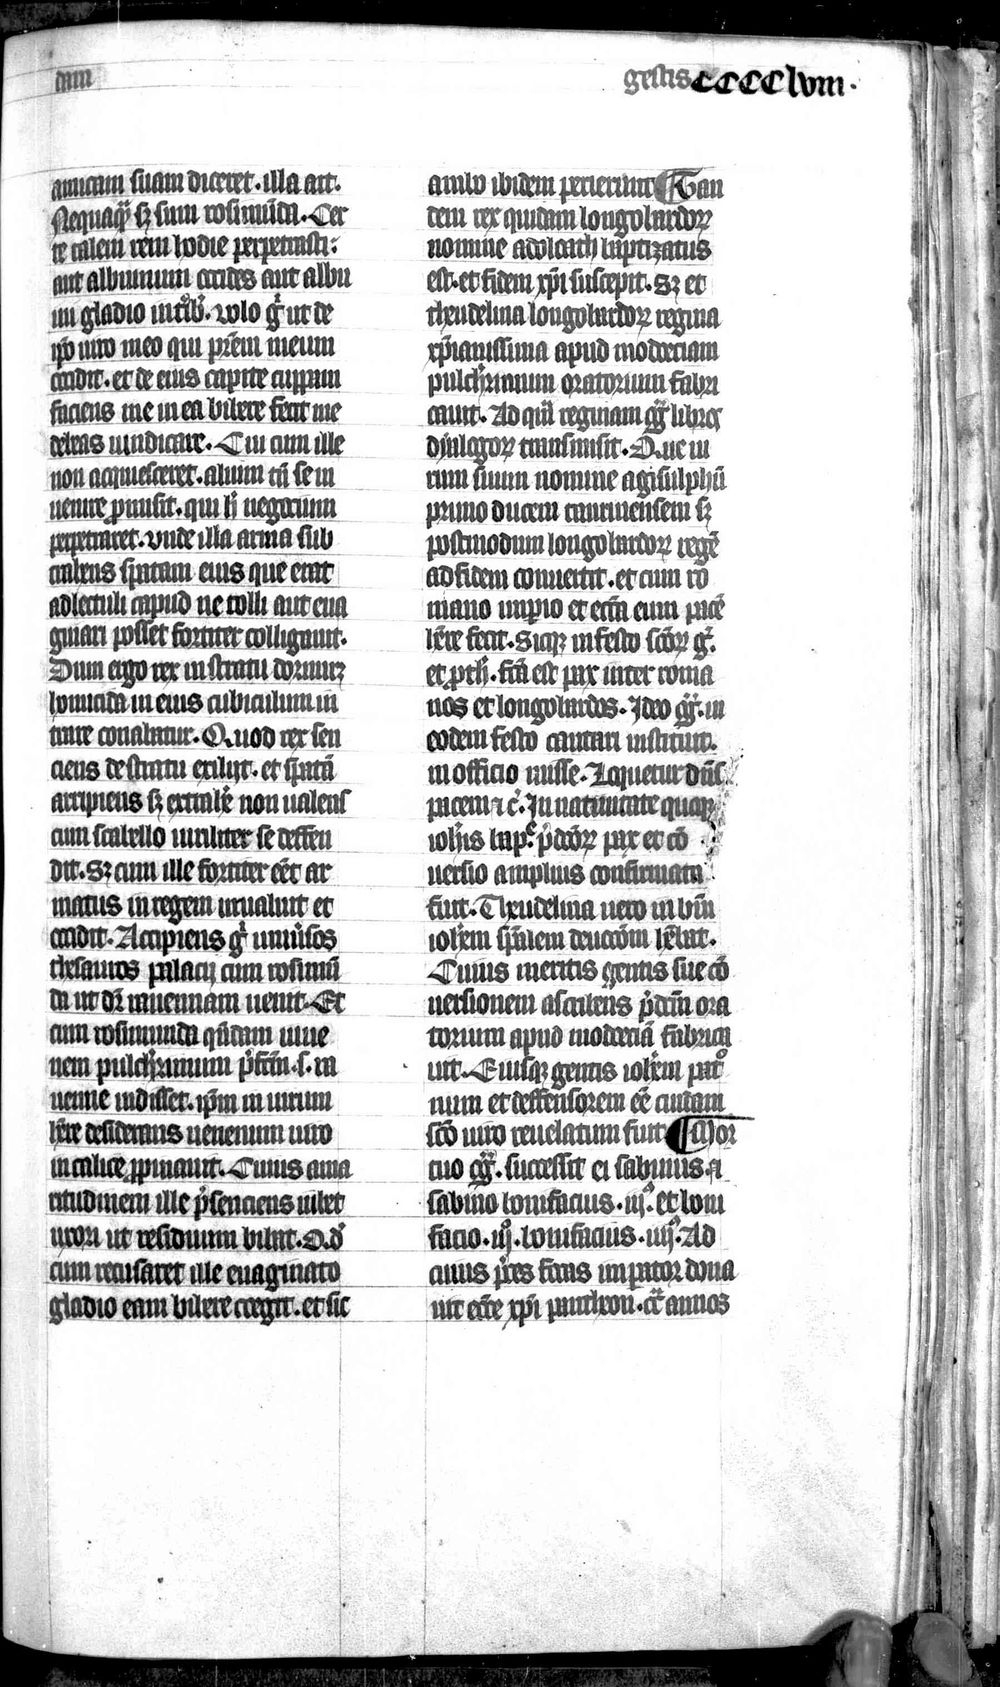 dam
gestis CCCClviii.
amicam suam diceret. illa ait.
Nequaqͣ sꝫ sum rosimūda. Cer
te talem rem hodie perpetrasti:
aut albuinum occides aut albu
inus gladio
uiro meo qui pr̄em meum
occidit. et de eius capite cuppam
faciens me in ea bibere fecit me
debeas uindicare. Cui cum ille
non acquiesceret. alium tn̄ se in
uenire ꝓmisit. qui h negocium
perpetraret. vnde illa arma sub
trahens spatam eius que erat
ad lectuli capud ne tolli aut eua
ginari posset fortiter colligauit.
Dum ergo rex in stratu dormirꝫ
homicida in eius cubiculum in
trare conabatur. Quod rex sen
ciens de stratu exilijt. et spatā
arripiens sꝫ extrahe non ualens
cum scabello uiriliter se deffen
dit. Sꝫ cum ille fortiter eēt ar
matus in regem inualuit et
occidit. Accipiens gͥ uniūsos
thesauros palacij cum rosimū
da ut dr̄ rauennam uenit. Et
cum rosimunda quēdam iuue
nem pulcherrimum p̄fctm̄ .s. ra
uenne uidisset. ip̄m in uirum
hr̄e desiderans uenenum uiro
in calice ꝓpinauit. Cuius ama
ritudinem ille p̄senciens iubet
uxori ut residuum bibat. Qd̓
cum recusaret ille euaginato
gladio eam bibere coegit. et sic
ambo ibidem perierunt ¶ Tan
dem rex quidam longobardoꝝ
nomine adoloath baptizatus
est. et fidem xp̄i suscepit. Sꝫ et
theudelina longobardoꝝ regina
xp̄ianissima apud modoeciam
pulcherrimum oratorium fabri
cauit. Ad quā reginam gͥg libros
dyalogoꝝ transmisit. Que ui
rum suum nomine agisulphū
primo ducem taurinensem sꝫ
postmodum longobardoꝝ regē
ad fidem conuertit. et cum ro
mano imꝑio et eccͣa eum pacē
hr̄e fecit. Sicqꝫ in festo scōꝝ gͥ.
et ꝓth. fcā est pax inter roma
nos et longobardos. Ideo gͥg. in
eodem festo cantari instituit.
in officio misse. Loquetur dn̄s
pacem ⁊ c̓. In natiuitate quoqꝫ
ioh̄is bapͭe p̄dcōꝝ pax et cō
uersio amplius confirmata
fuit. Theudelina uero in bm̄
ioh̄em spālem deuocōm habebat.
Cuius meritis gentis sue cō
uersionem ascribens p̄dcm̄ ora
torium apud modoeciā fabrica
uit. Eiusqꝫ gentis ioh̄em patͦ
num et deffensorem eē cuidam
scō uiro reuelatum fuit ¶ Mor
tuo gͥg. successit ei sabinus. ⁊
sabino bonifacius. iijͦ. et boni
facio. iijͦ. bonifacius. iiijͦ. Ad
cuius p̄ces focas imꝑator dona
uit ecc̄e xp̄i pantheon. cͣ annos